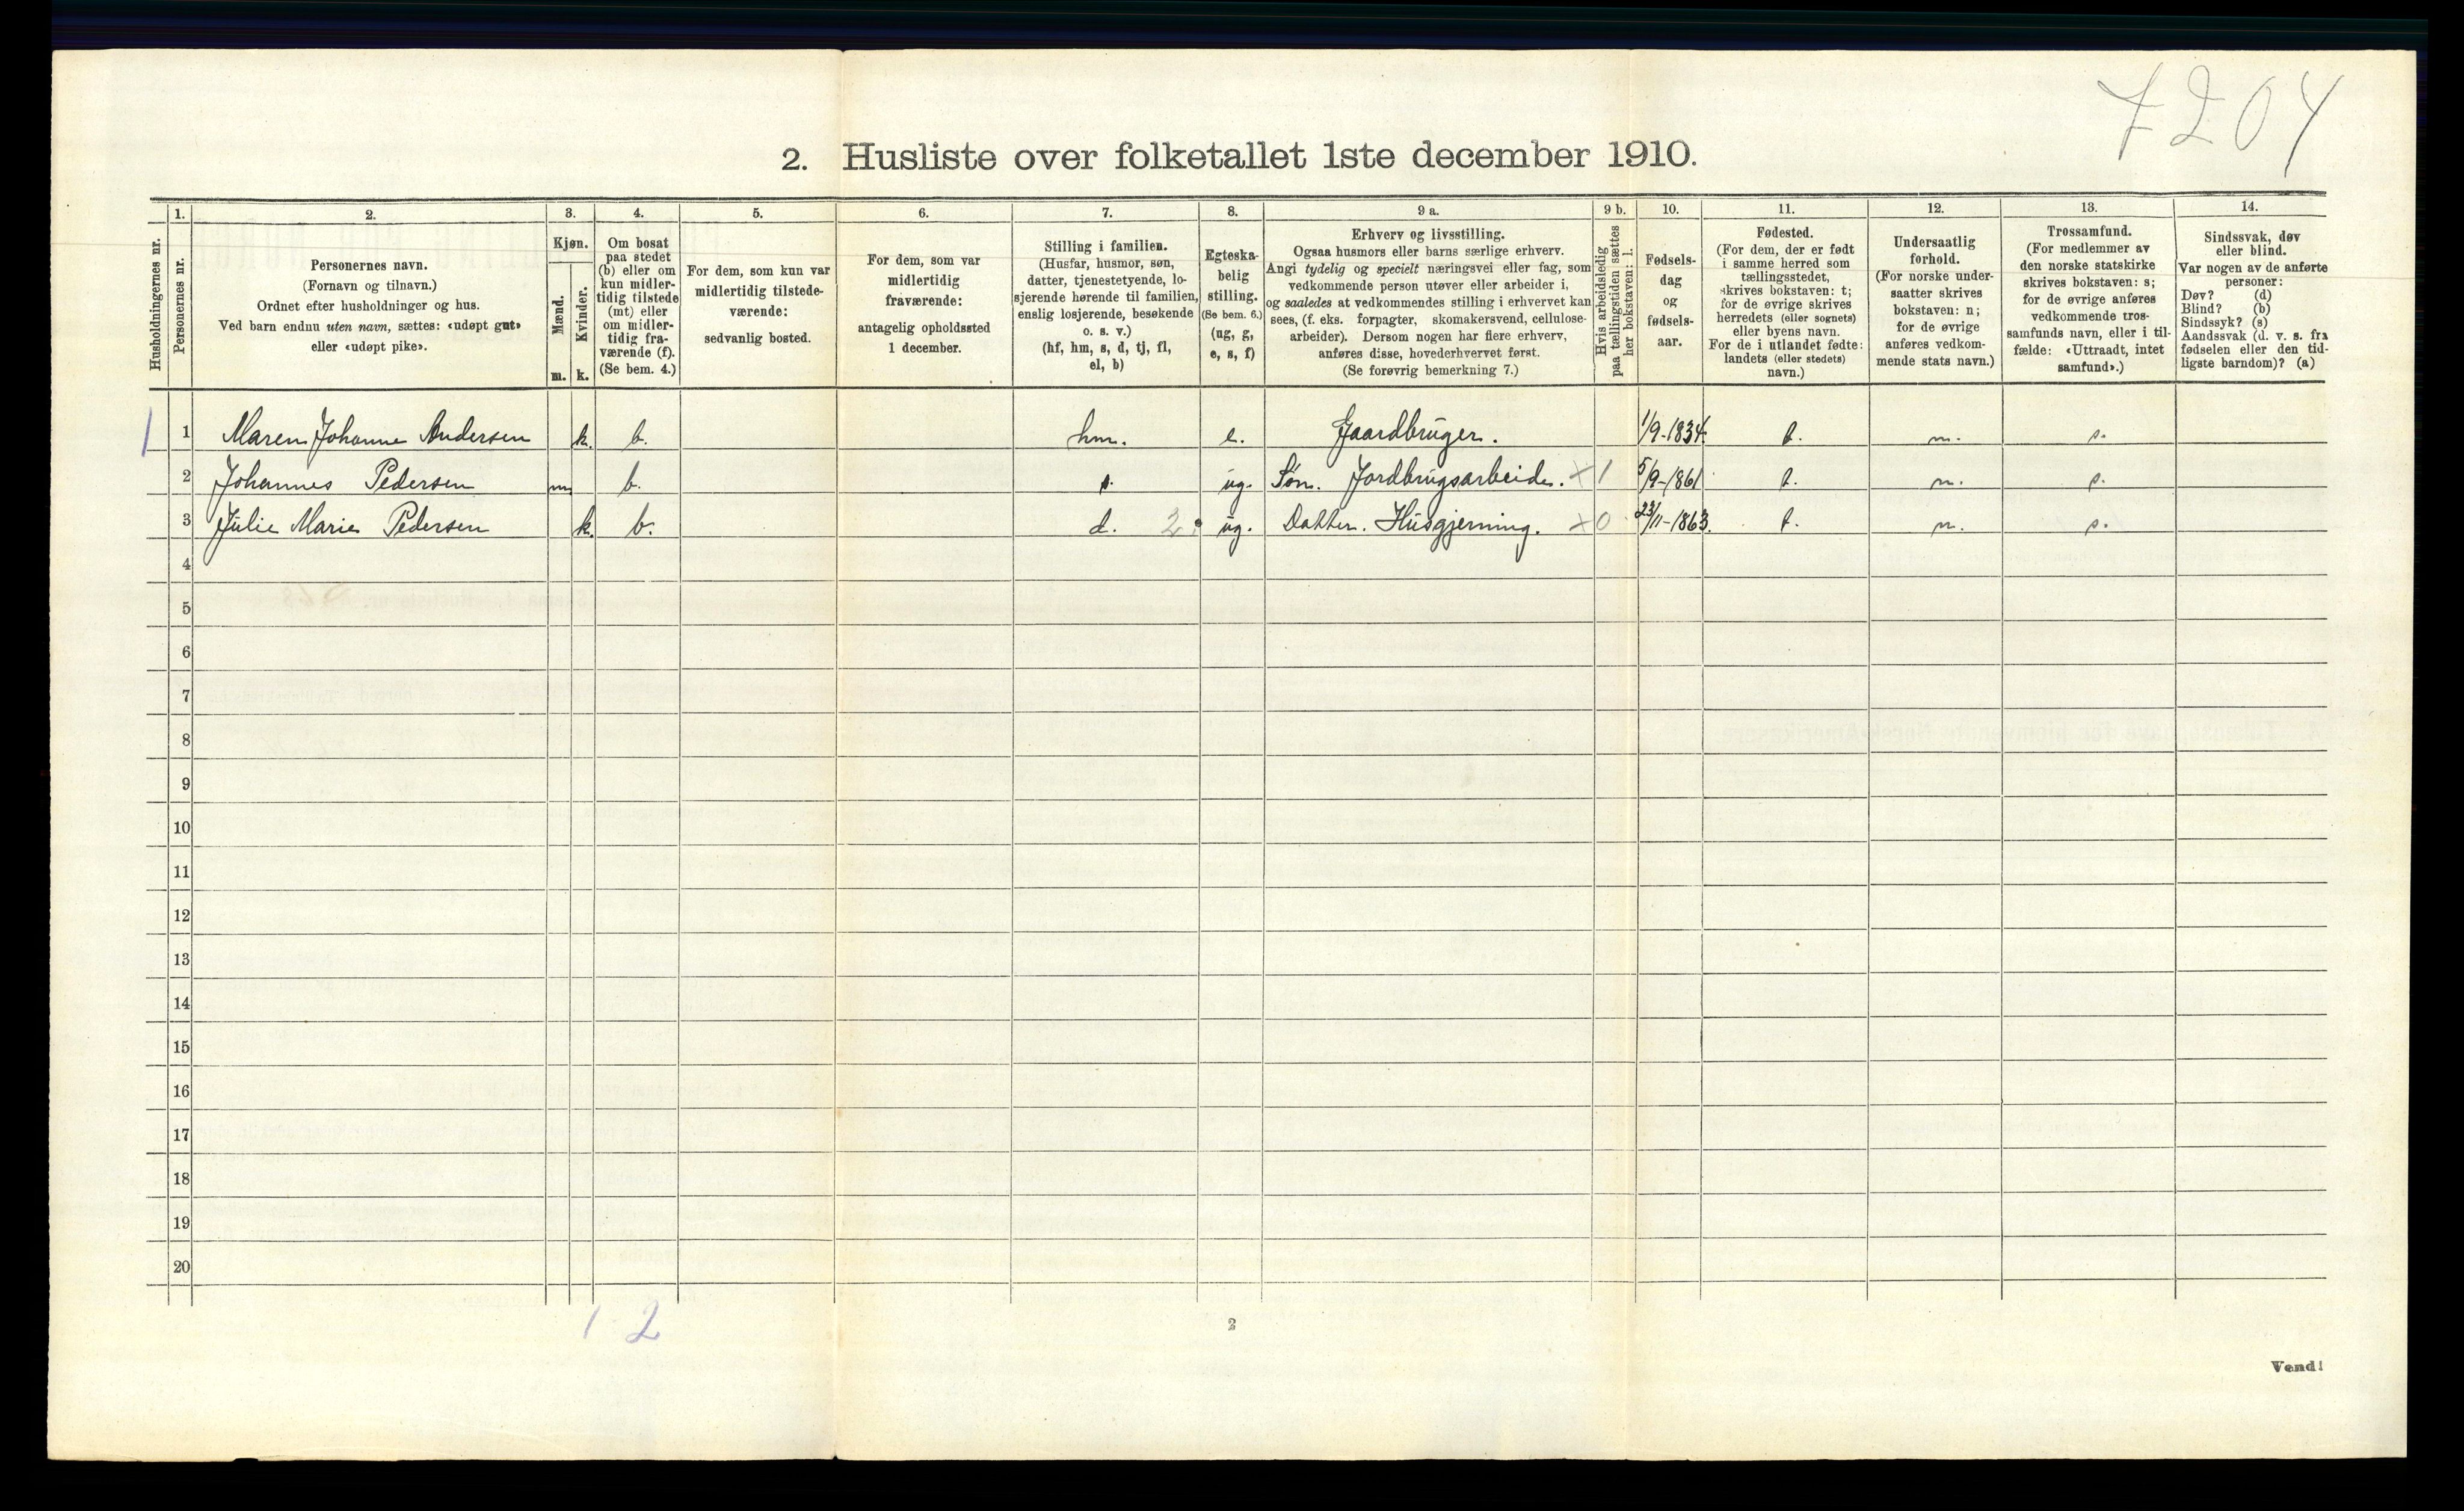 7204
2. Husliste over folketallet 1ste december 1910.
Husholdningernes nr.
1.
Personernes nr.
2.
Personernes navn.
(Fornavn og tilnavn.)
Ordnet efter husholdninger og hus.
Ved barn endnu uten navn, sættes: «udøpt gut»
eller «udøpt pike».
3.
Kjøn.
Mænd.
m.
Kvinder.
k.
4.
Om bosat
paa stedet
(b) eller om
kun midler-
tidig tilstede
(mt) eller
om midler-
tidig fra-
værende (f).
(Se bem. 4.)
5.
For dem, som kun var
midlertidig tilstede-
værende:
sedvanlig bosted.
6.
For dem, som var
midlertidig
fraværende:
antagelig opholdssted
1 december.
7.
Stilling i familien.
(Husfar, husmor, søn,
datter, tjenestetyende, lo-
sjerende hørende til familien,
enslig losjerende, besøkende
o. s. v.)
(hf, hm, s, d, tj, fl,
el, b)
8.
Egteska-
belig
stilling.
(Se bem. 6.)
(ug, g,
e, s, f)
9 a.
Erhverv og livsstilling.
Ogsaa husmors eller barns særlige erhverv.
Angi tydelig og specielt næringsvei eller fag, som
vedkommende person utøver eller arbeider i,
og saaledes at vedkommendes stilling i erhvervet kan
sees, (f. eks. forpagter, skomakersvend, cellulose-
arbeider). Dersom nogen har flere erhverv,
anføres disse, hovederhvervet først.
(Se forøvrig bemerkning 7.)
9 b.
Hvis arbeidsledig
paa tællingstiden sættes
her bokstaven: l.
10.
Fødsels-
dag
og
fødsels-
aar.
11.
Fødested.
(For dem, der er født
i samme herred som
tællingsstedet,
skrives bokstaven: t;
for de øvrige skrives
herredets (eller sognets)
eller byens navn.
For de i utlandet fødte:
landets (eller stedets)
navn.)
12.
Undersaatlig
forhold.
(For norske under-
saatter skrives
bokstaven: n;
for de øvrige
anføres vedkom-
mende stats navn.)
13.
Trossamfund.
(For medlemmer av
den norske statskirke
skrives bokstaven: s;
for de øvrige anføres
vedkommende tros-
samfunds navn, eller i til-
fælde: «Uttraadt, intet
samfund».)
14.
Sindssvak, døv
eller blind.
Var nogen av de anførte
personer:
Døv? (d)
Blind? (b)
Sindssyk? (s)
Aandssvak (d. v. s. fra
fødselen eller den tid-
ligste barndom)? (a)
1 1 Maren Johanne Andersen k. b. hm. e. Gaardbruger. 1/9-1834. t. n. s.
2 Johannes Pedersen m b. s. ug. Søn. Jordbrugsarbeide. x 1 5/9-1861 t. n. s.
3 Julie Marie Pedersen k. b. d. 2. ug. Datter. Husgjerning. x 0 23/11-1863. t. n. s.
4
5
6
7
8
9
10
11
12
13
14
15
16
17
18
19
20
1 2
2
Vend!